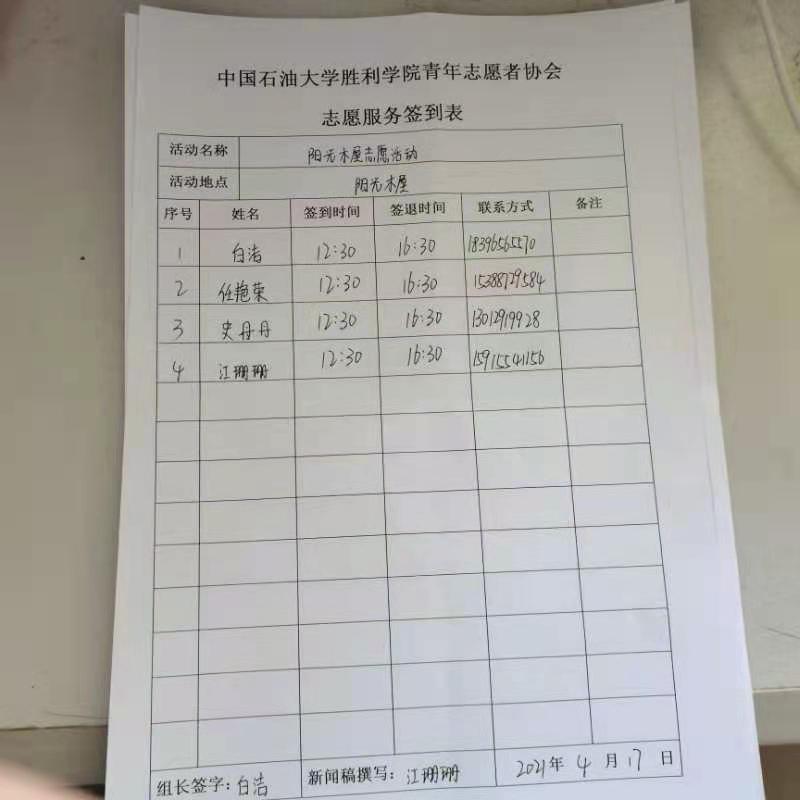 中国石油大学胜利学院青年志愿者协会
志愿服务签到表
活动名称 阳光木屋志愿活动
活动地点 阳光木屋
序号 姓名 签到时间 签退时间 联系方式 备注
1 白洁 12:30 16:30 18396565570
2 任艳荣 12:30 16:30 15388729584
3 史丹丹 12:30 16:30 13012919928
4 江珊珊 12:30 16:30 15915541156
组长签字：白洁 新闻稿撰写：江珊珊 2021年 4 月 17 日